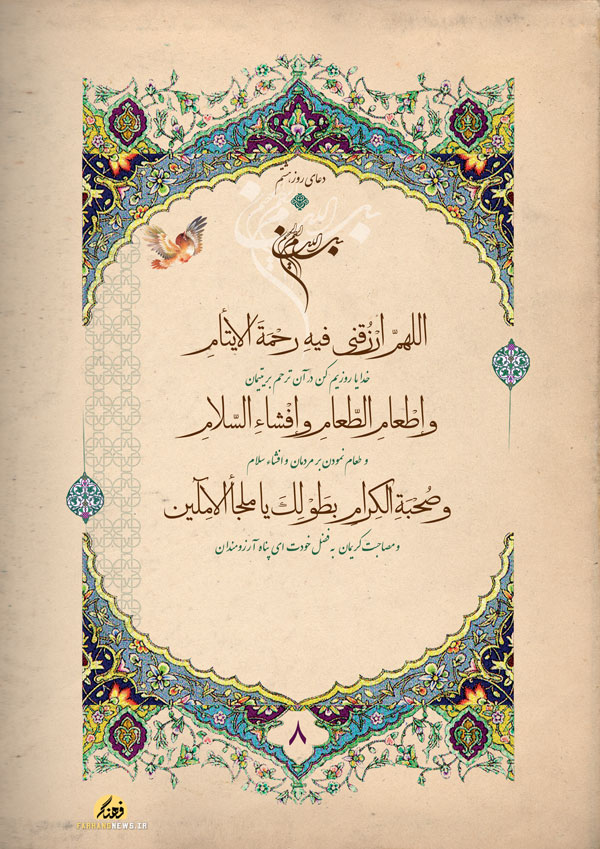 دعای روز هشتم
بسم الله الرحمن الرحیم
اللهمَّ ارْزُقنی فیهِ رحمَةَ الایتأمِ
خدایا روزیم کن در آن ترحم بر یتیمان
وإطْعامِ الطَّعامِ وإفْشاءِ السَّلامِ
و طعام نمودن بر مردمان و افشاء سلام
وصُحْبَةِ الکِرامِ بِطَوْلِكَ یا ملجأ الامِلین
و مصاحبت کریمان به فضل خودت ای پناه آرزومندان
۸
فرهنگ
FARHANGNEWS.IR